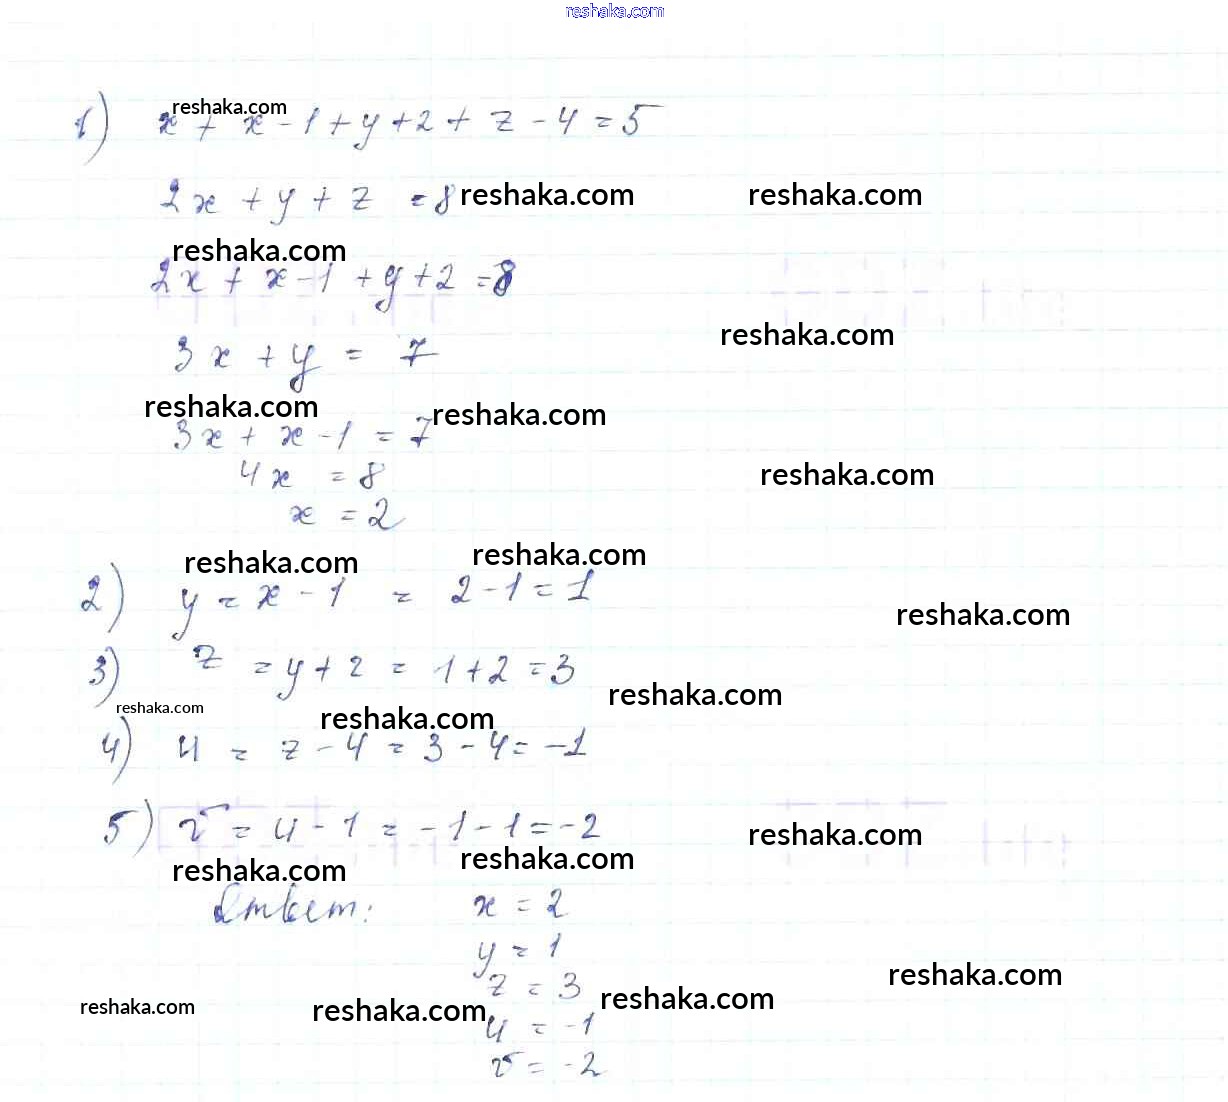 reshaka.com
reshaka.com
1) x + x - 1 + y + 2 + z - 4 = 5
2x + y + z = 8 reshaka.com reshaka.com
reshaka.com
2x + x - 1 + y + 2 = 8
reshaka.com
3x + y = 7
reshaka.com reshaka.com
3x + x - 1 = 7
4x = 8 reshaka.com
x = 2
reshaka.com reshaka.com
2) y = x - 1 = 2 - 1 = 1
reshaka.com
3) z = y + 2 = 1 + 2 = 3
reshaka.com
reshaka.com reshaka.com
4) u = z - 4 = 3 - 4 = -1
5) v = u - 1 = -1 - 1 = -2
reshaka.com
reshaka.com reshaka.com
Ответ: x = 2
y = 1
reshaka.com
z = 3
reshaka.com reshaka.com reshaka.com
u = -1
v = -2